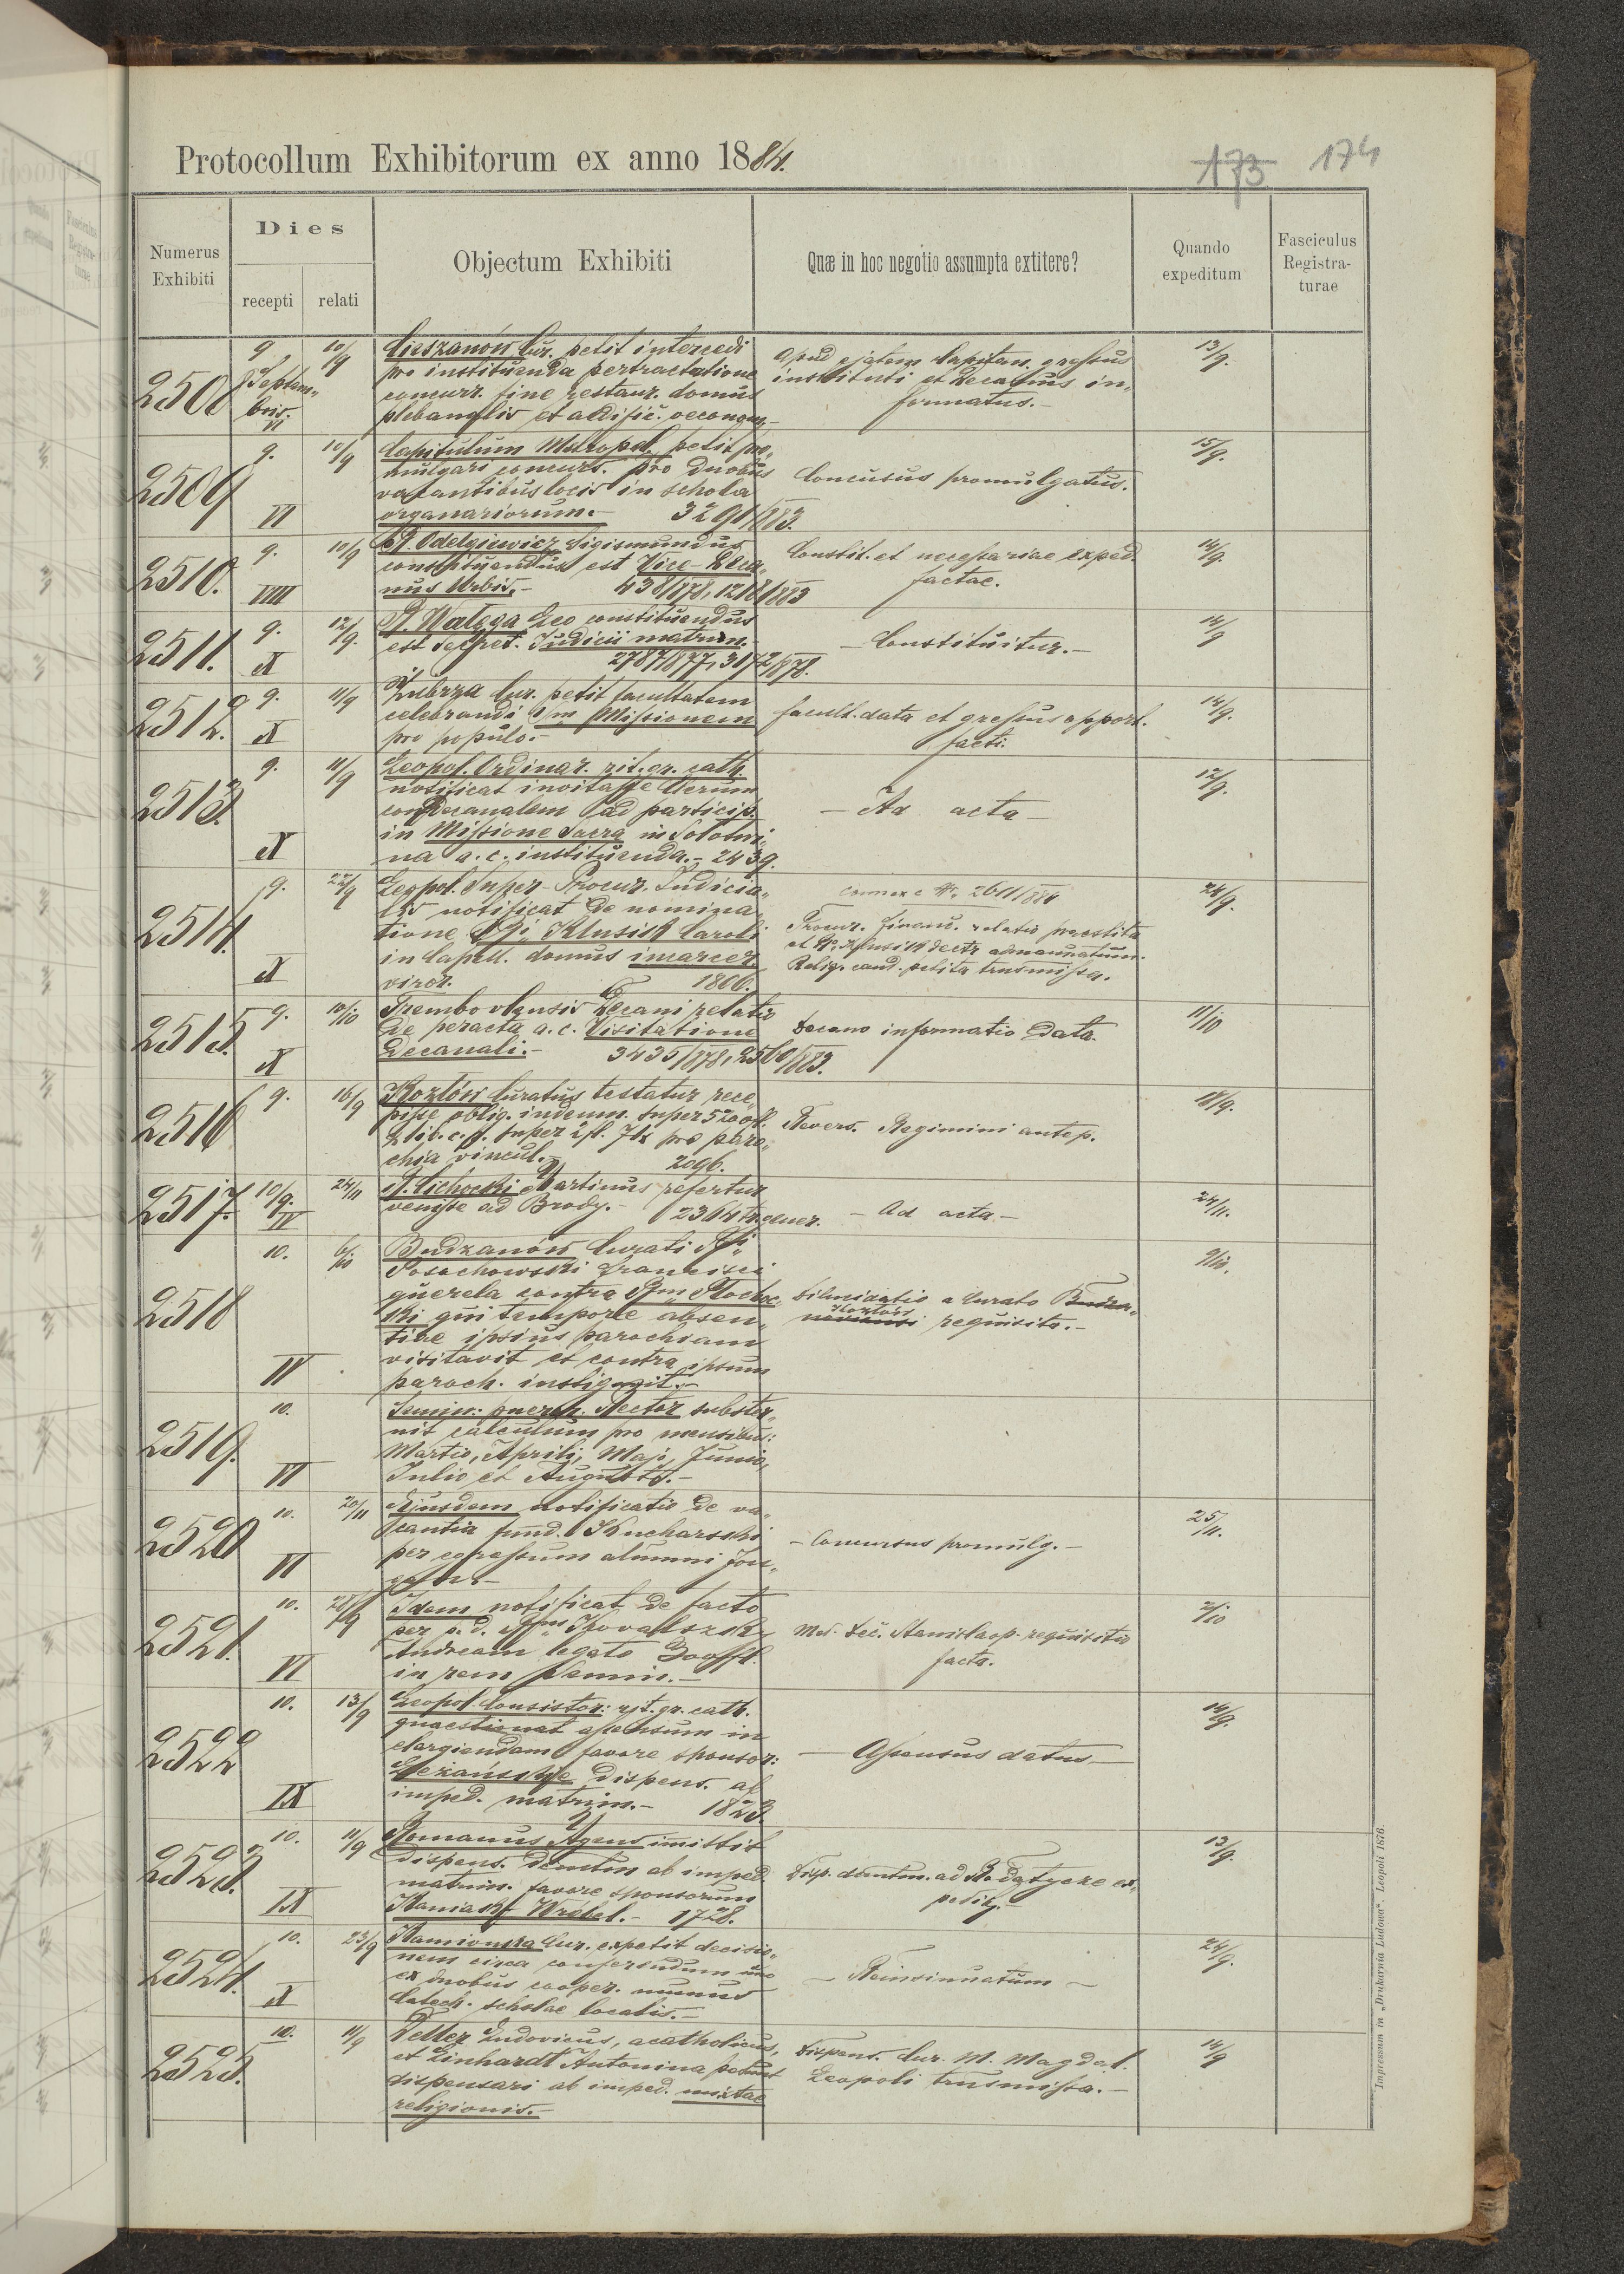 Protocollum Exhibitorum ex anno 1884.
173 174
Numerus Exhibiti
Dies
recepti relati
Objectum Exhibiti
Quæ in hoc negotio assumpta extitere?
Quando expeditum
Fasciculus Registra-
turae
2508
9 Septem-
bris.
VI
10/9
Cieszanów Cur. petit intercedi
pro instituenda pertractatione
concurr. fine restaur. domus
plebanalis et aedific. oeconom.
Apud ejatem Capitan. gressus
instituti et Decanus in-
formatus.-
13/9.
2509
9.
VI
10/9
Capitulum Metropol. petit pro-
mulgari concurs. pro duobus
vacantibus locis in schola
organariorum.- 3291/883.
Concursus promulgatus.
15/9.
2510.
9.
VIII
10/9
R. Odelgiewicz Sigismundus
constituendus est Vice-Deca-
nus Urbis.- 438/878, 1218/883
Constit. et necessariae exped.
factae.
14/9.
2511.
9.
X
12/9.
R. Wałęga Leo constituendus
est Secret. Judicii matrim.
2787/877, 3172/878.
- Constituitur.-
14/9
2512.
9.
X
11/9
Zubrza Cur. petit facultatem
celebrandi Sm Missionem
pro populo.-
facult. data et gressus opport.
facti.
14/9.
2513.
9.
X
11/9
Leopol. Ordinar. rit. gr. cath.
notificat invitasse Clerum
conDecanalem ad particip.
in Missione Sacra in Sołotwi-
na a. c. instituenda.- 2439.
- Ad acta -
12/9.
2514.
9.
X
22/9
Leopol. Super-Procur. Judicia-
lis notificat de nomina-
tione Klusik Caroli
in Capell. domus incarcer.
viror. 1806.
connex c Nr. 2611/884
Procur. financ. relatio praestita
et Klusik
transmissa.
24/9.
2515.
9.
X
10/10
Trembovlensis Decani relatio
de peracta a. c. Visitatione
Decanali.- 3435/878, 2560/883.
Decano informatio data.
11/10
2516
9.
16/9
Kozłów Curatus testatur rece-
pisse oblig. indemn. super 5200 fl.
super pro paro-
chia vincul.- 2096.
Revers. Regimini antep.
18/9.
2517.
10/9.
IV
24/11
R. Cichocki Martinus refertur
venisse ad Brody.- 2364 gener.
- Ad acta -
24/11.
2518
10.
IV
6/10
Budzanów Curati
Sosochowski Francisci
querela contra
ki qui tempore absen-
tiae ipsius parochiam
visitavit et contra ipsum
paroch. instigavit.-
Dilucidatio a Curato Budza-
Kozłów
requisita.-
9/10.
2519.
10.
VI
Semin: puer. Rector subster-
nit calculum pro mensibus:
Martio, Aprili, Majo, Junio,
Julio et Augusto.-
2520
10.
VI
20/11
Ejusdem notificatio de va-
cantia fund. Kucharski
per egressum alumni
- Concursus promulg.-
25/11.
2521.
10.
VI
28/9
Idem notificat de facto
per p. d. Kovalszki
Andream legato
in rem Semin.-
Mod. Dec. Stanislaop. requisitio
facta.
2/10
2522
10.
IX
13/9
Leopol. Consistor: rit. gr. cath.
quaestionat assensum in
elargiendam favore sponsor:
dispens. ab
imped. matrim.- 1823.
- Assensus datus -
14/9.
2523.
10.
IX
11/9
Romanus Agens imittit
dispens. ab imped.
matrim. favore sponsorum
Kaniak Wróbel.- 1728.
Disp. ad Rodatycze ex-
pedit.
13/9.
2524.
10.
X
23/9
Kamionka Cur. expetit decisio-
nem circa conferendum uni
ex duobus cooper. munus
Catech. scholae localis.-
- Reinsinuatum -
24/9.
2525.
10.
11/9
Veller Ludovicus, acatholicus,
et Linhardt Antonina petunt
dispensari ab imped. mixtae
religionis.-
Dispens. Cur. M. Magdal.
Leopoli transmissa.-
14/9
Impressum in „Drukarnia Ludowa“. Leopoli 1876.